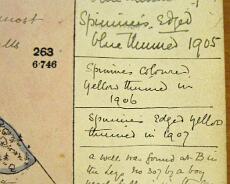 most
lls
263
6·746
Spinnies Edged
blue thinned 1905
Spinnies Coloured
Yellow thinned in
1906
Spinnies Edged Yellow
thinned in 1907
a well was found at B in
the Seq. no 307 by a boy